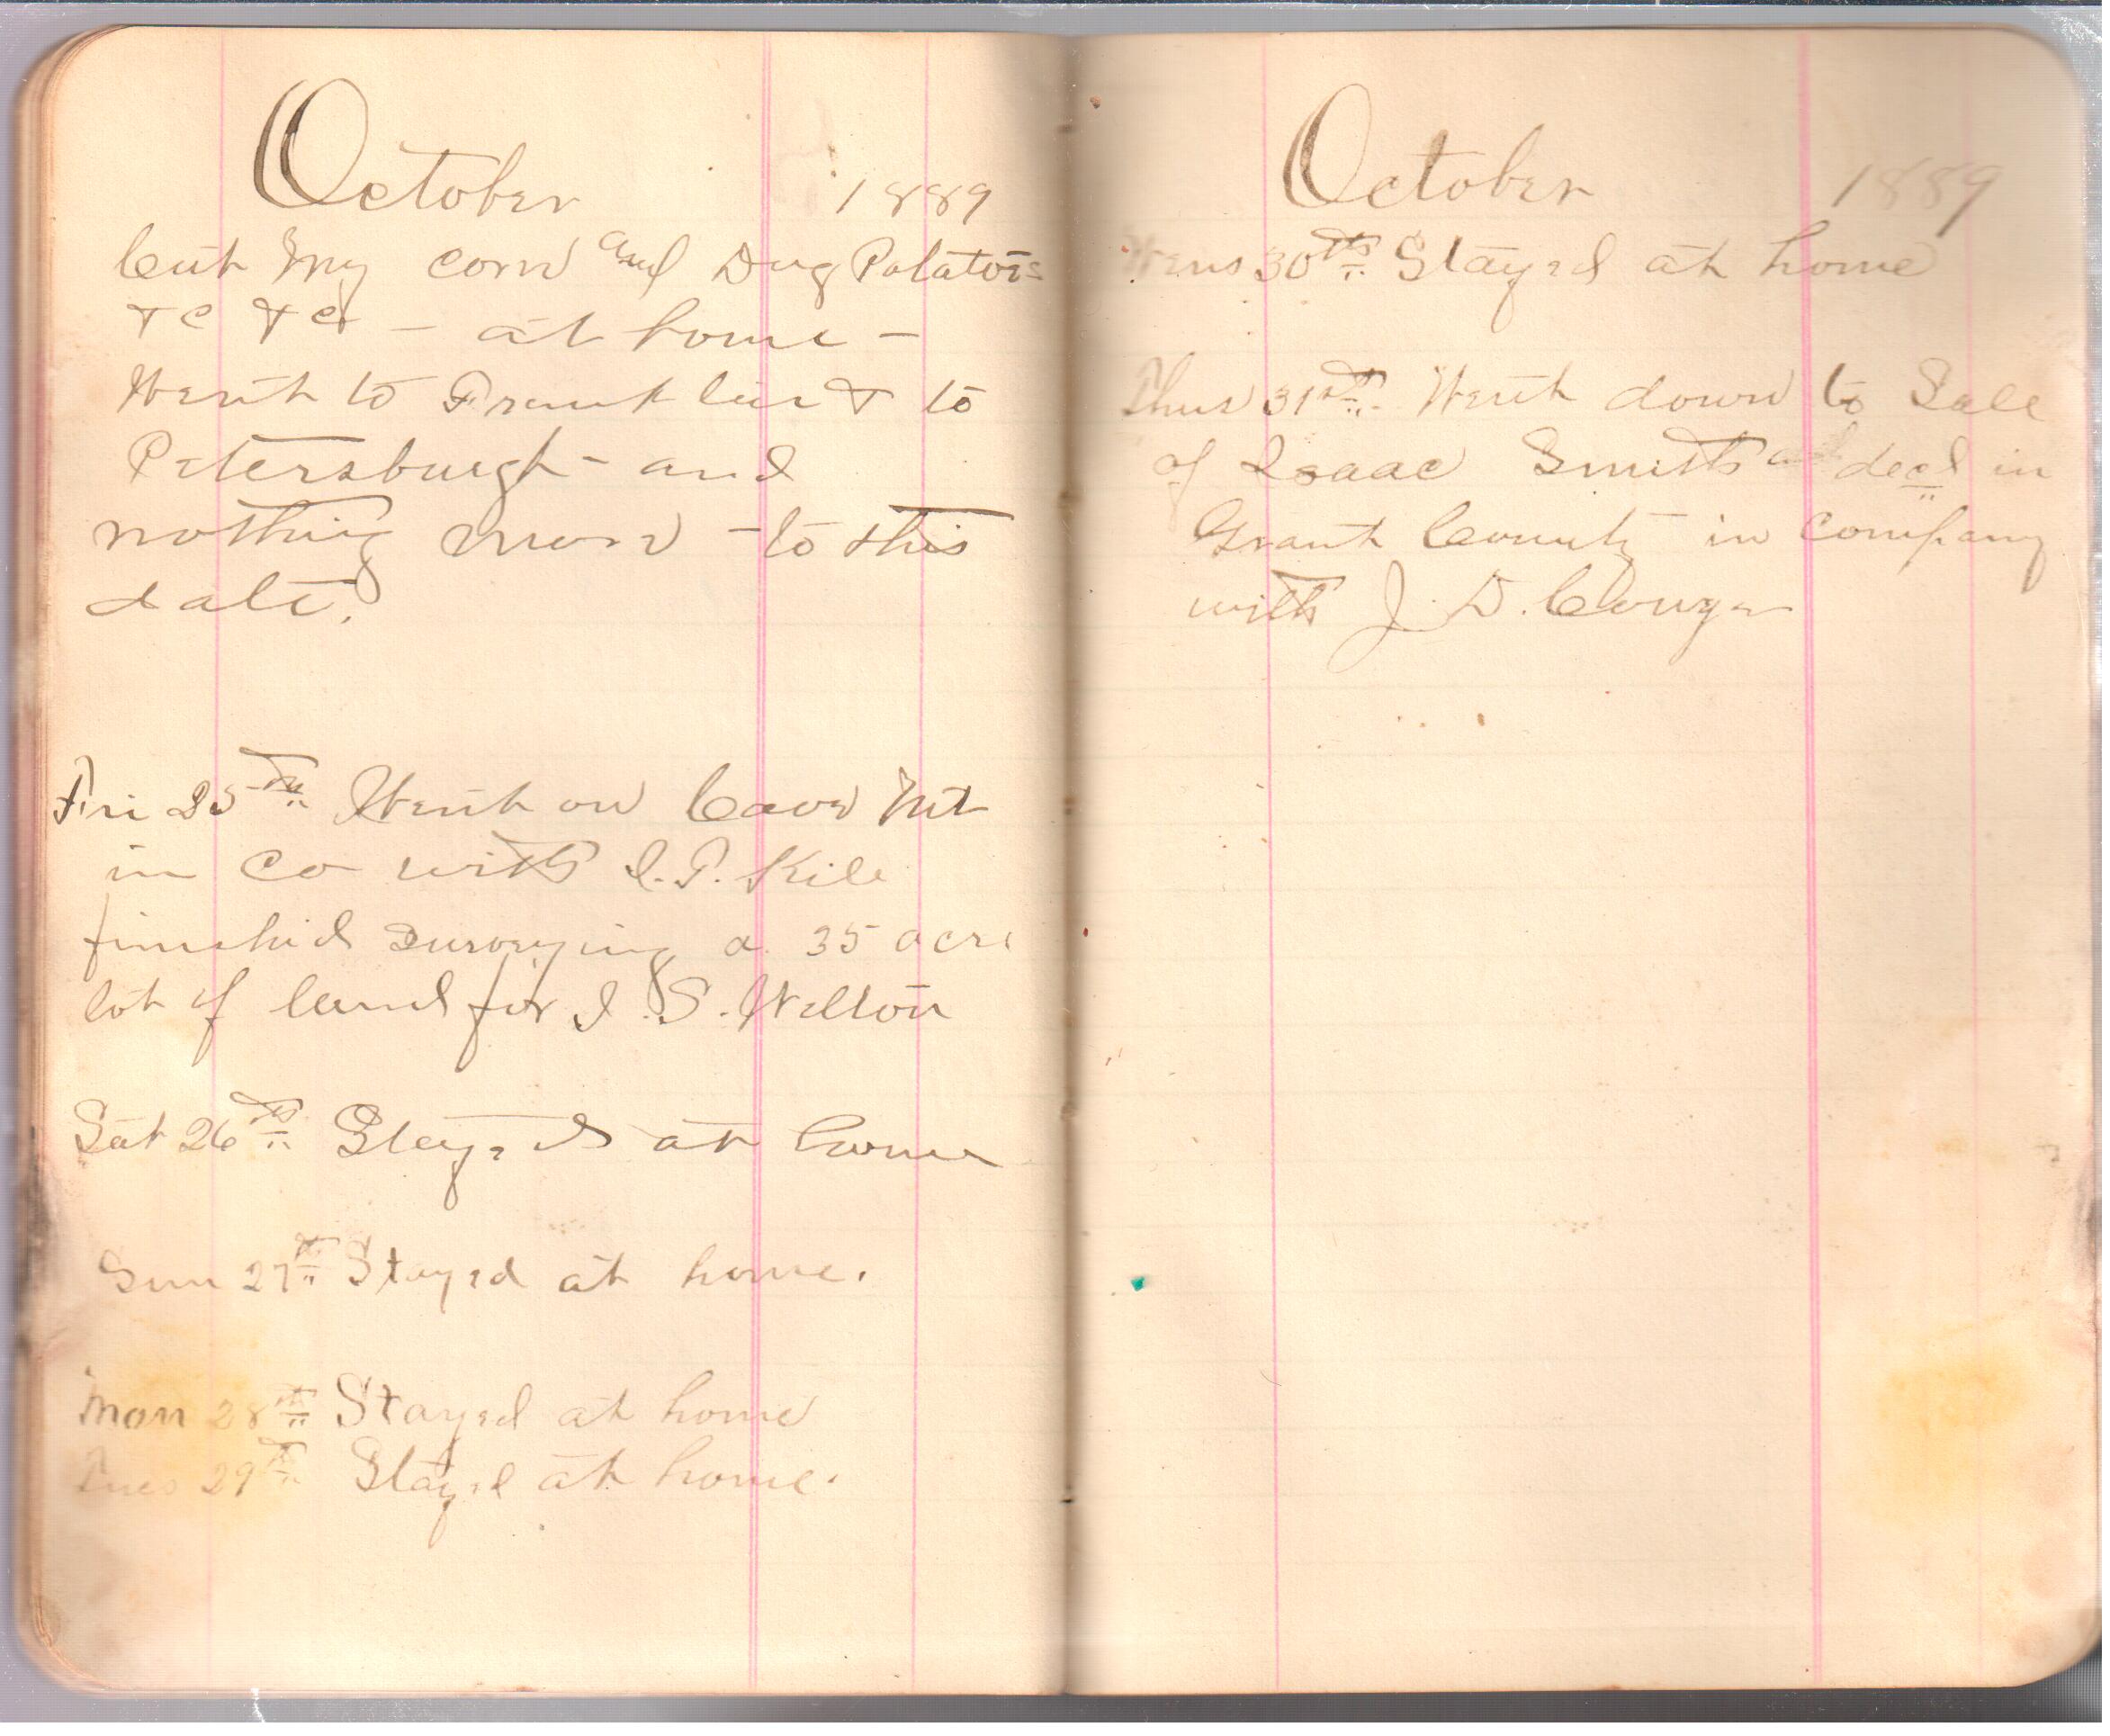 October 1889
Cut my corn and Dug Potatoes
&C &C - at home -
Went to Franklin & to
Petersburgh - and
nothing more - to this
date.
Fri 25th Went on Cave Mt
in Co with I. P. Kile
finishid surveying a 35 acre
lot of land for J. S. Welton
Sat 26th Stayed at home
Sun 27th Stayed at home.
Mon 28th Stayed at home
Tues 29th Stayed at home.
October 1889
Wens 30th Stayed at home
Thus 31st Went down to Sale
of Isaac Smith decd in
Grant County in company
with J. D. Conger